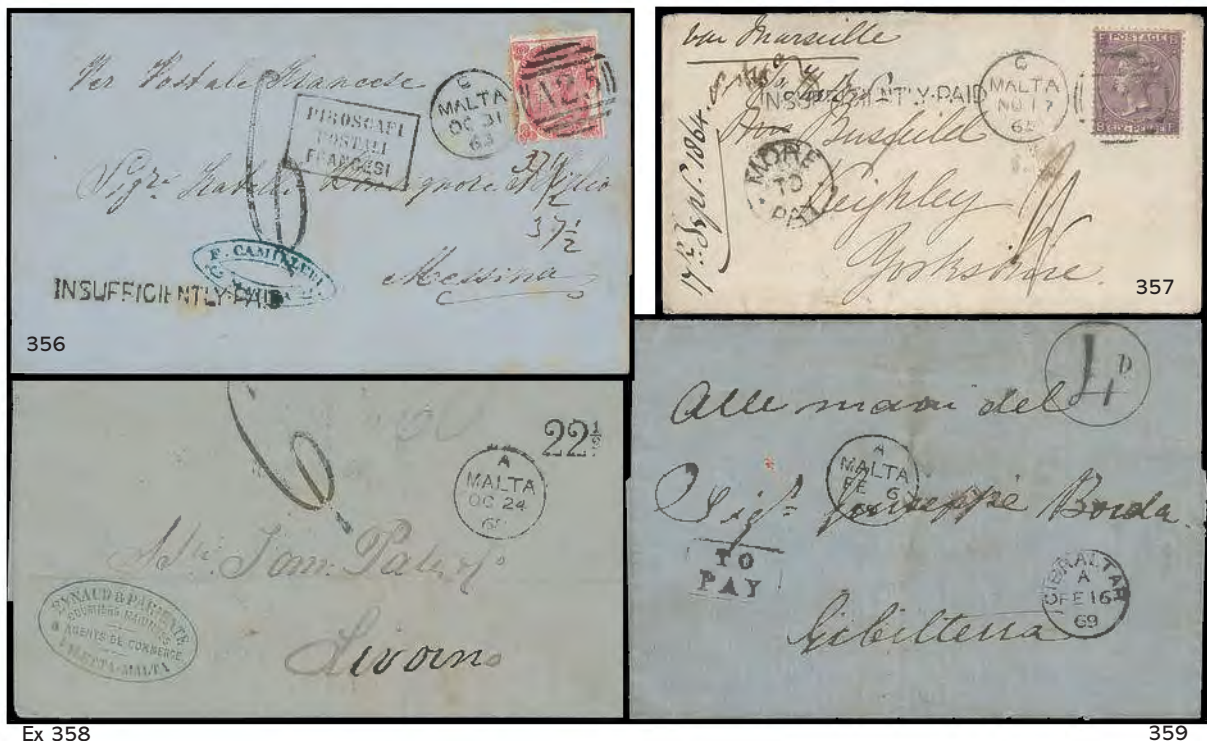 Per Postale Francese
C
MALTA
OC 31
PIROSCAFI
POSTALI
FRANCESI
6
37½
37½
Messina
F. CAMILLERI
INSUFFICIENTLY-PAID
356
via Marseille
17th Sept. 1864
INSUFFICIENTLY-PAID
C
MALTA
NO 17
POSTAGE
SIX-PENCE
Busfeild
MORE
TO
PAY
Keighley
Yorkshire
357
22½
A
MALTA
OC 24
Livorno
EYNAUD & PARIENTE
COURTIERS MARITIMES
& AGENTS DE COMMERCE
VALETTA-MALTA
Ex 358
4D
Alle mani del
A
MALTA
FE 6
Sigr. Giuseppe Borda
TO
PAY
GIBRALTAR
A
FE 16
69
Gibilterra
359